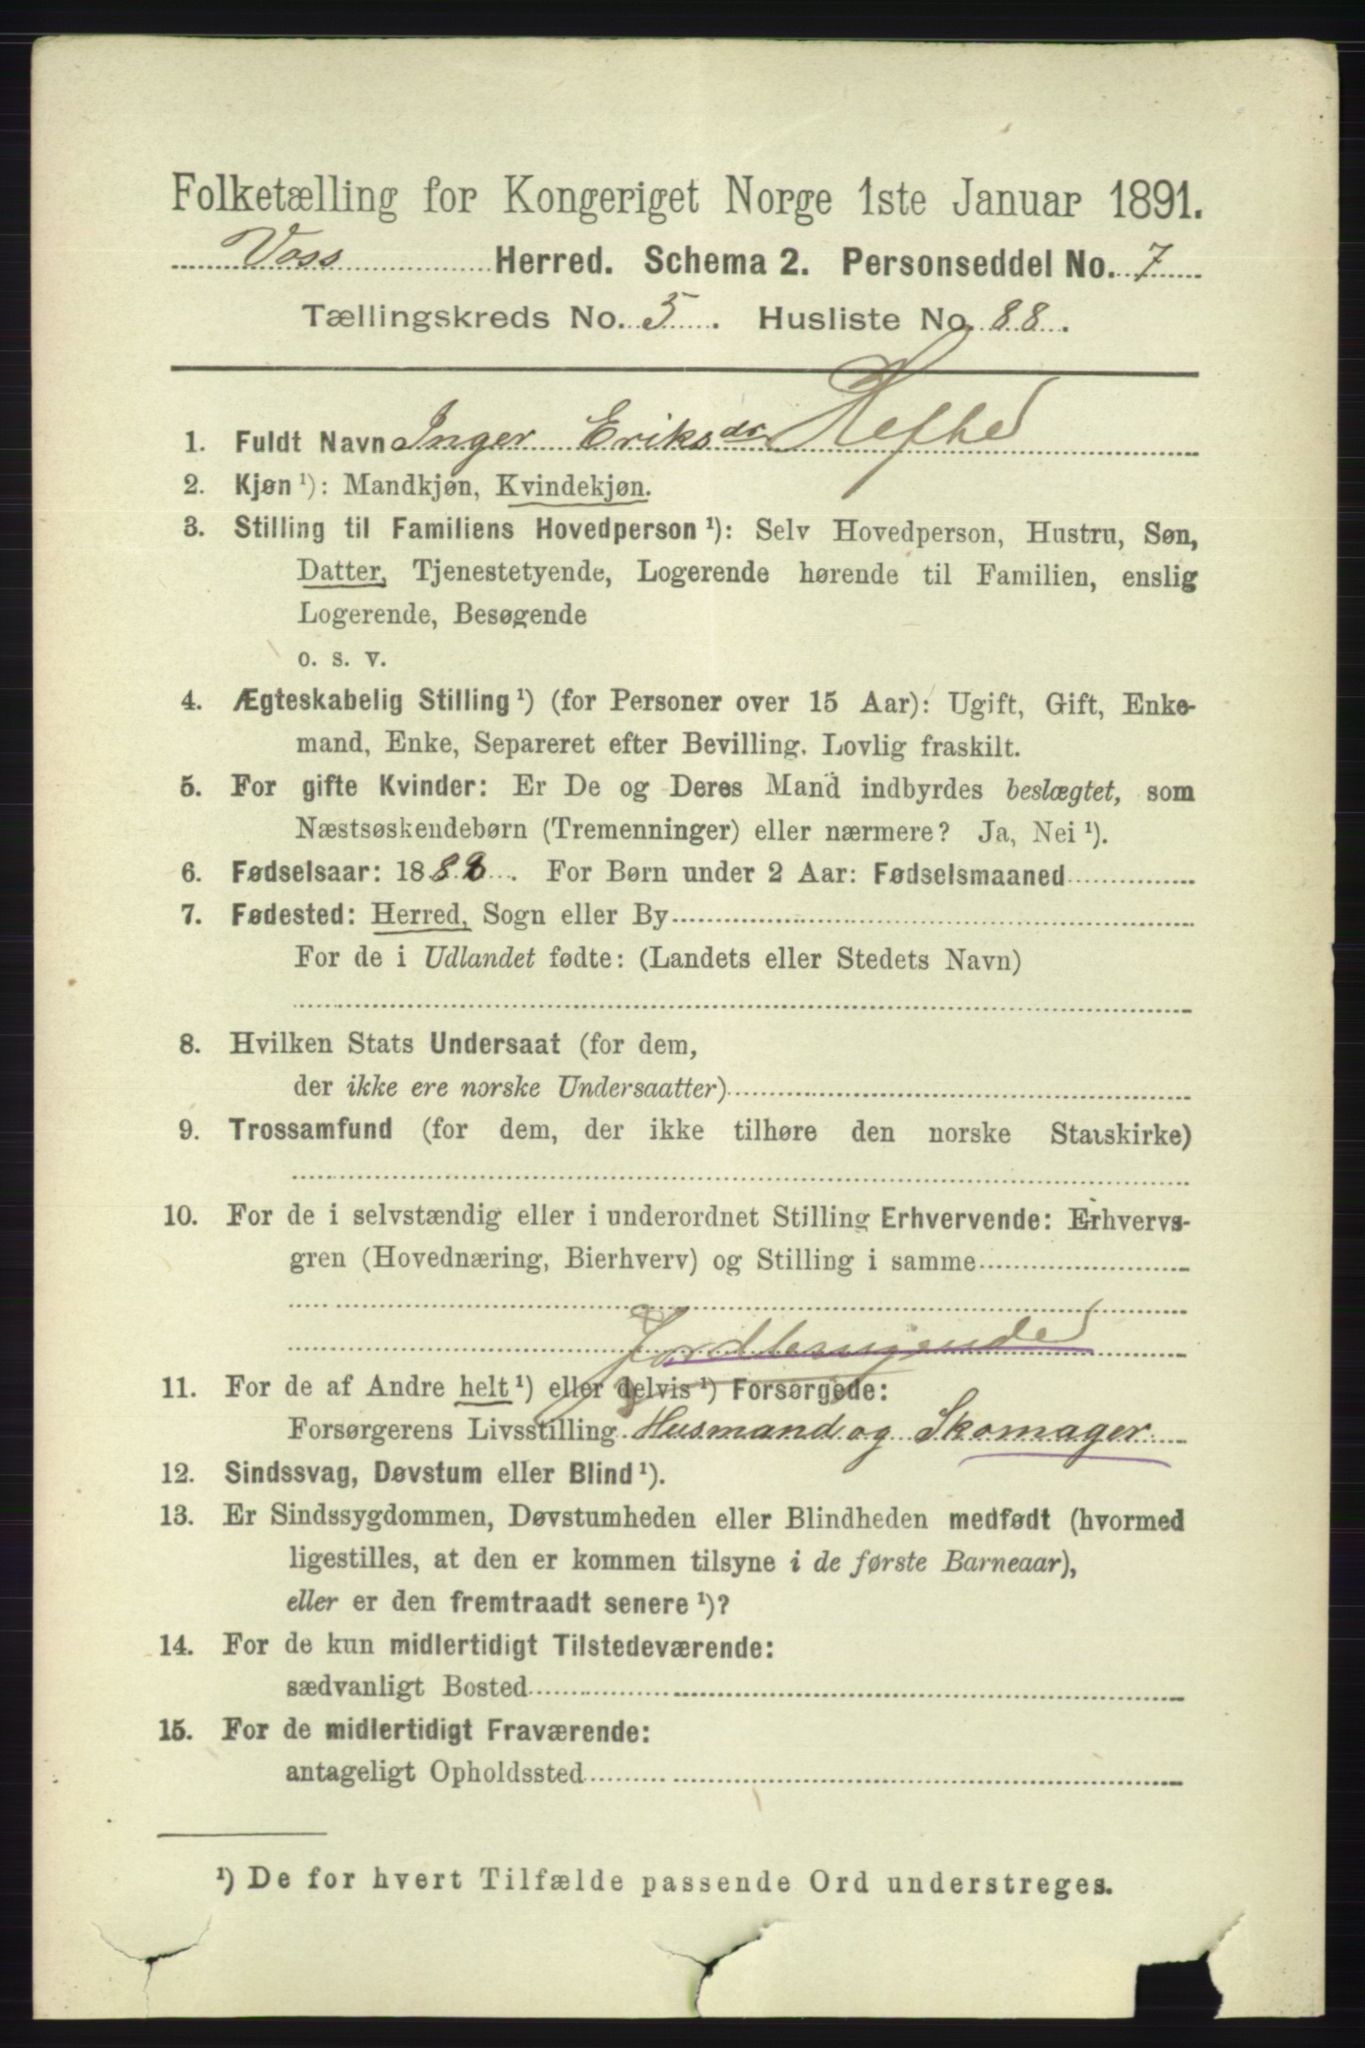 Folketælling for Kongeriget Norge 1ste Januar 1891.
Voss Herred. Schema 2. Personseddel No. 7
Tællingskreds No. 5. Husliste No. 88.
1. Fuldt Navn Inger Eriksdr
2. Kjøn ¹): Mandkjøn, Kvindekjøn.
3. Stilling til Familiens Hovedperson ¹): Selv Hovedperson, Hustru, Søn,
Datter, Tjenestetyende, Logerende hørende til Familien, enslig
Logerende, Besøgende
o. s. v.
4. Ægteskabelig Stilling ¹) (for Personer over 15 Aar): Ugift, Gift, Enke-
mand, Enke, Separeret efter Bevilling. Lovlig fraskilt.
5. For gifte Kvinder: Er De og Deres Mand indbyrdes beslægtet, som
Næstsøskendebørn (Tremenninger) eller nærmere? Ja, Nei ¹).
6. Fødselsaar: 188 . For Børn under 2 Aar: Fødselsmaaned
7. Fødested: Herred, Sogn eller By
For de i Udlandet fødte: (Landets eller Stedets Navn)
8. Hvilken Stats Undersaat (for dem,
der ikke ere norske Undersaatter)
9. Trossamfund (for dem, der ikke tilhøre den norske Statskirke)
10. For de i selvstændig eller i underordnet Stilling Erhvervende: Erhvervs-
gren (Hovednæring, Bierhverv) og Stilling i samme
11. For de af Andre helt ¹) eller delvis ¹) Forsørgede:
Forsørgerens Livsstilling Husmand og Skomager
12. Sindssvag, Døvstum eller Blind ¹).
13. Er Sindssygdommen, Døvstumheden eller Blindheden medfødt (hvormed
ligestilles, at den er kommen tilsyne i de første Barneaar),
eller er den fremtraadt senere ¹)?
14. For de kun midlertidigt Tilstedeværende:
sædvanligt Bosted
15. For de midlertidigt Fraværende:
antageligt Opholdssted
¹) De for hvert Tilfælde passende Ord understreges.